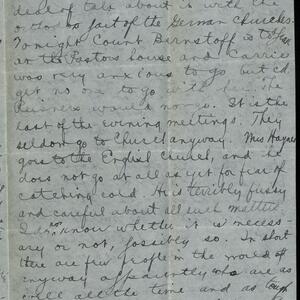 deal of talk about it with the
part of the German Churches.
Tonight Count Bernstoff is to
at the Pastors house and Carrie
was very anxious to go but cd
get no one to go with her. The
would not go. It is the
last of the evening meetings. They
seldom go to Church anyway. Mrs Haynes
goes to the English church, and he
does not go at all as yet for fear of
catching cold. He is terribly fussy
and careful about all such matters.
I do not know whether it is necess-
ary or not, possibly so. In short
there are few people in the world
anyway apparently who are as
well all the time and as tough